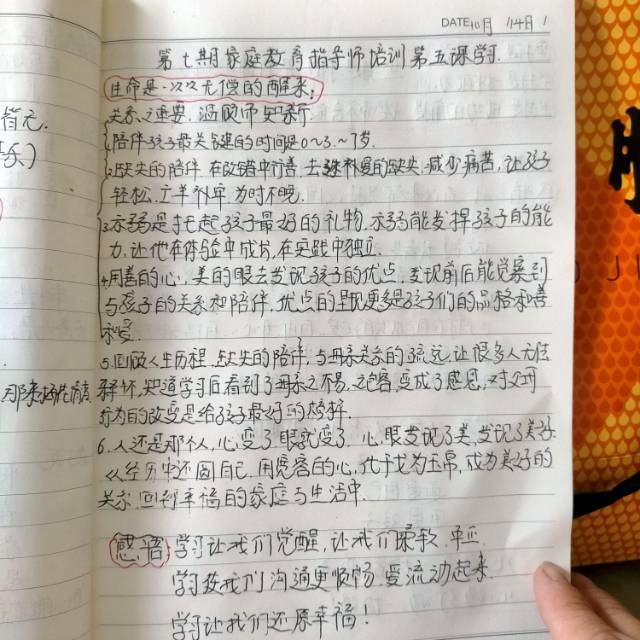 DATE 10月 14日 1
第七期家庭教育指导师培训第五课学习
生命是一次次无偿的醒来:
关系之重要, 温故而更新
1.陪伴孩子最关键的时间是0~3.~7岁
2.缺失的陪伴,在改错中行善,去弥补爱的缺失,减少痛苦,让孩子
轻松,立羊补牢,为时不晚.
3.示弱是托起孩子最好的礼物,示弱能发挥孩子的能
力,让他在体验中成长,在实践中独立.
4.用善的心,美的眼去发现孩子的优点,发现前后能觉察到
与孩子的关系和陪伴,优点的呈现更多是孩子们的品格和善
和爱
5.回顾人生历程,缺失的陪伴,与母亲关系的疏远,让很多人无法
释怀,知道学习后看到了母亲之不易,
变成了感恩,对父母
行为的改变是给孩子最好的榜样.
6.人还是那个人,心变了眼就变了,心眼发现了美,发现了美好
从经历中还圆自己,用宽容的心,化干戈为玉帛,成为美好的
关系,回到幸福的家庭与生活中.
感悟:学习让我们觉醒,让我们柔软,平和.
学习教我们沟通更顺畅 爱流动起来.
学习让我们还原幸福!